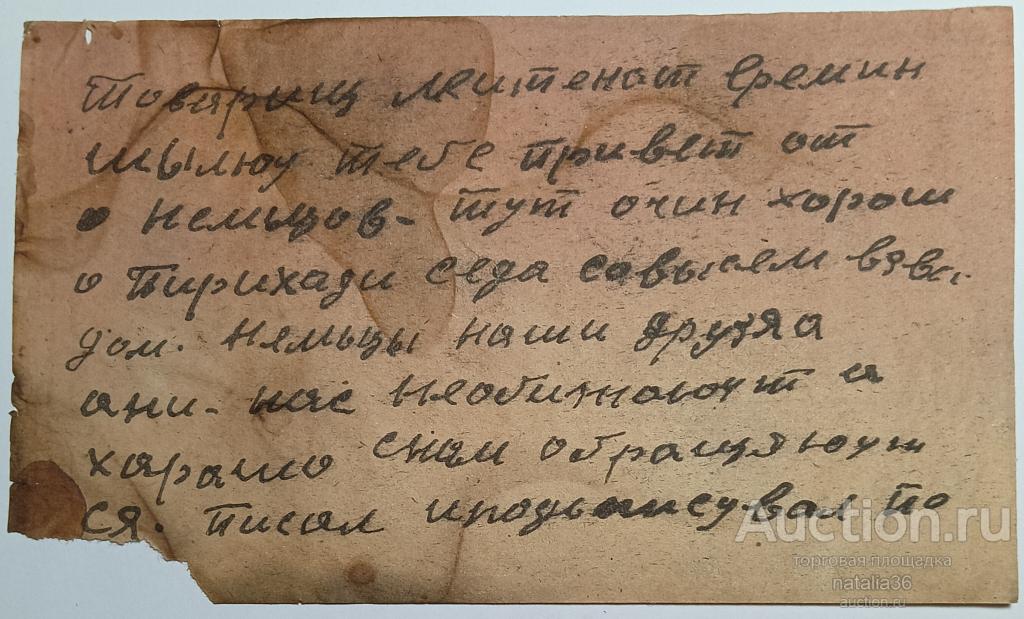 Товарищ леитенат Еремин
шылюу тебе привет от
о немьцов - тут очин хорош
о пирихади седа савысем взво
дом. немьцы наши друзя а
ани - нас необижают а
харашо снам обращяюут
ся. писал иподьписувал по
Auction.ru
торговая площадка
natalia36
auction.ru